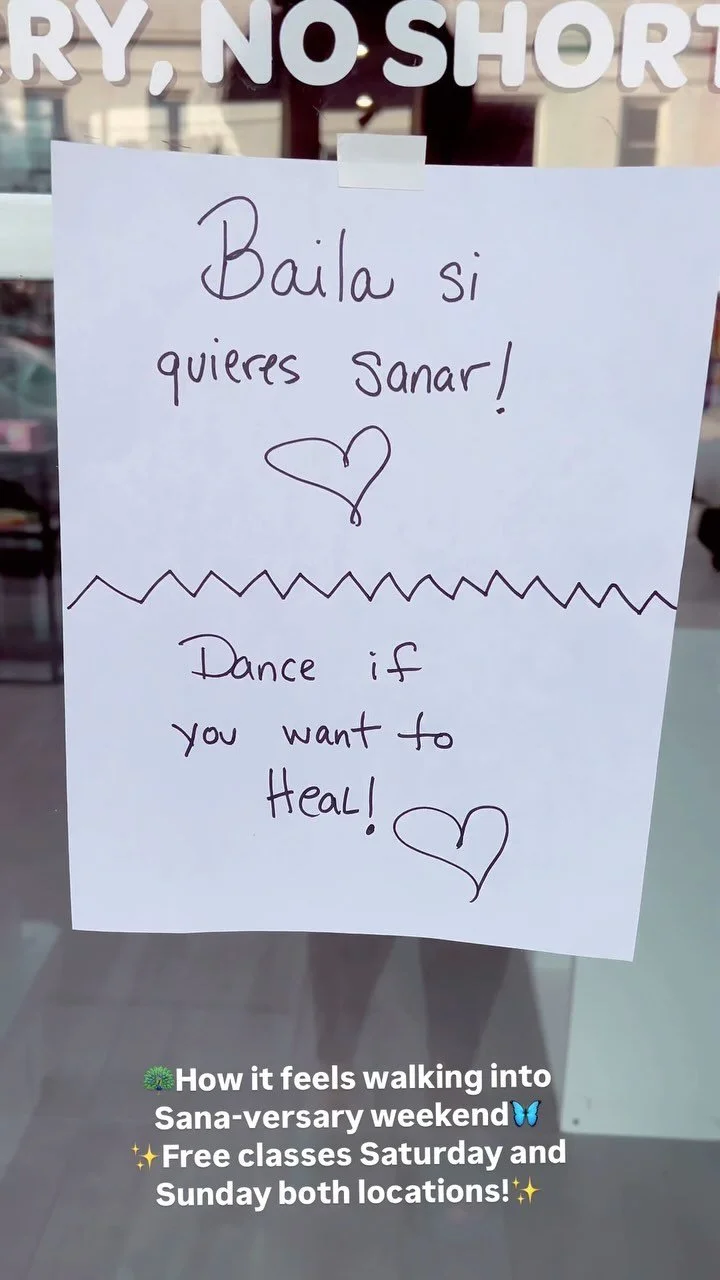 RY, NO SHORT
Baila si
quieres sanar!
Dance if
you want to
Heal!
🦚How it feels walking into
Sana-versary weekend🦋
✨Free classes Saturday and
Sunday both locations!✨